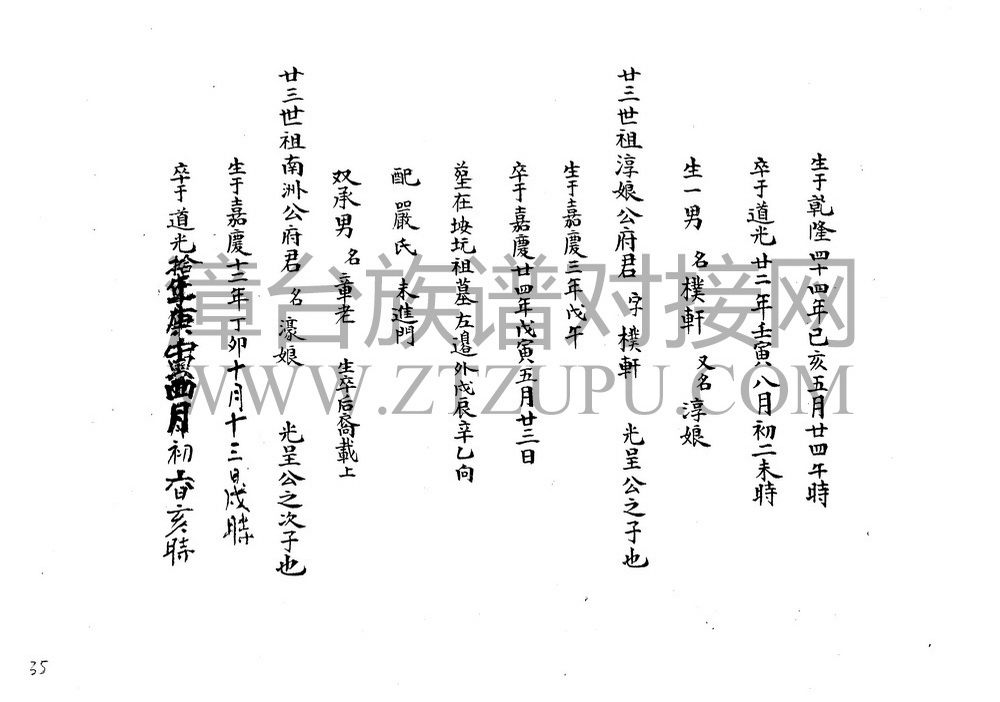 生于乾隆四十四年己亥五月廿四午時
卒于道光廿二年壬寅八月初二未時
生一男 名樸軒 又名淳娘
廿三世祖淳娘公府君 字樸軒 光呈公之子也
生于嘉慶三年戊午
卒于嘉慶廿四年戊寅五月廿三日
墓在坡坑祖墓左邉外戍辰辛乙向
配嚴氏 未進門
双承男 名章老 生卒后裔載上
廿三世祖南洲公府君 名濠娘 光呈公之次子也
生于嘉慶十二年丁卯十月十三日戌時
卒于道光拾年庚寅四月初六日亥時
章台族谱对接网
WWW.ZTZUPU.COM
35